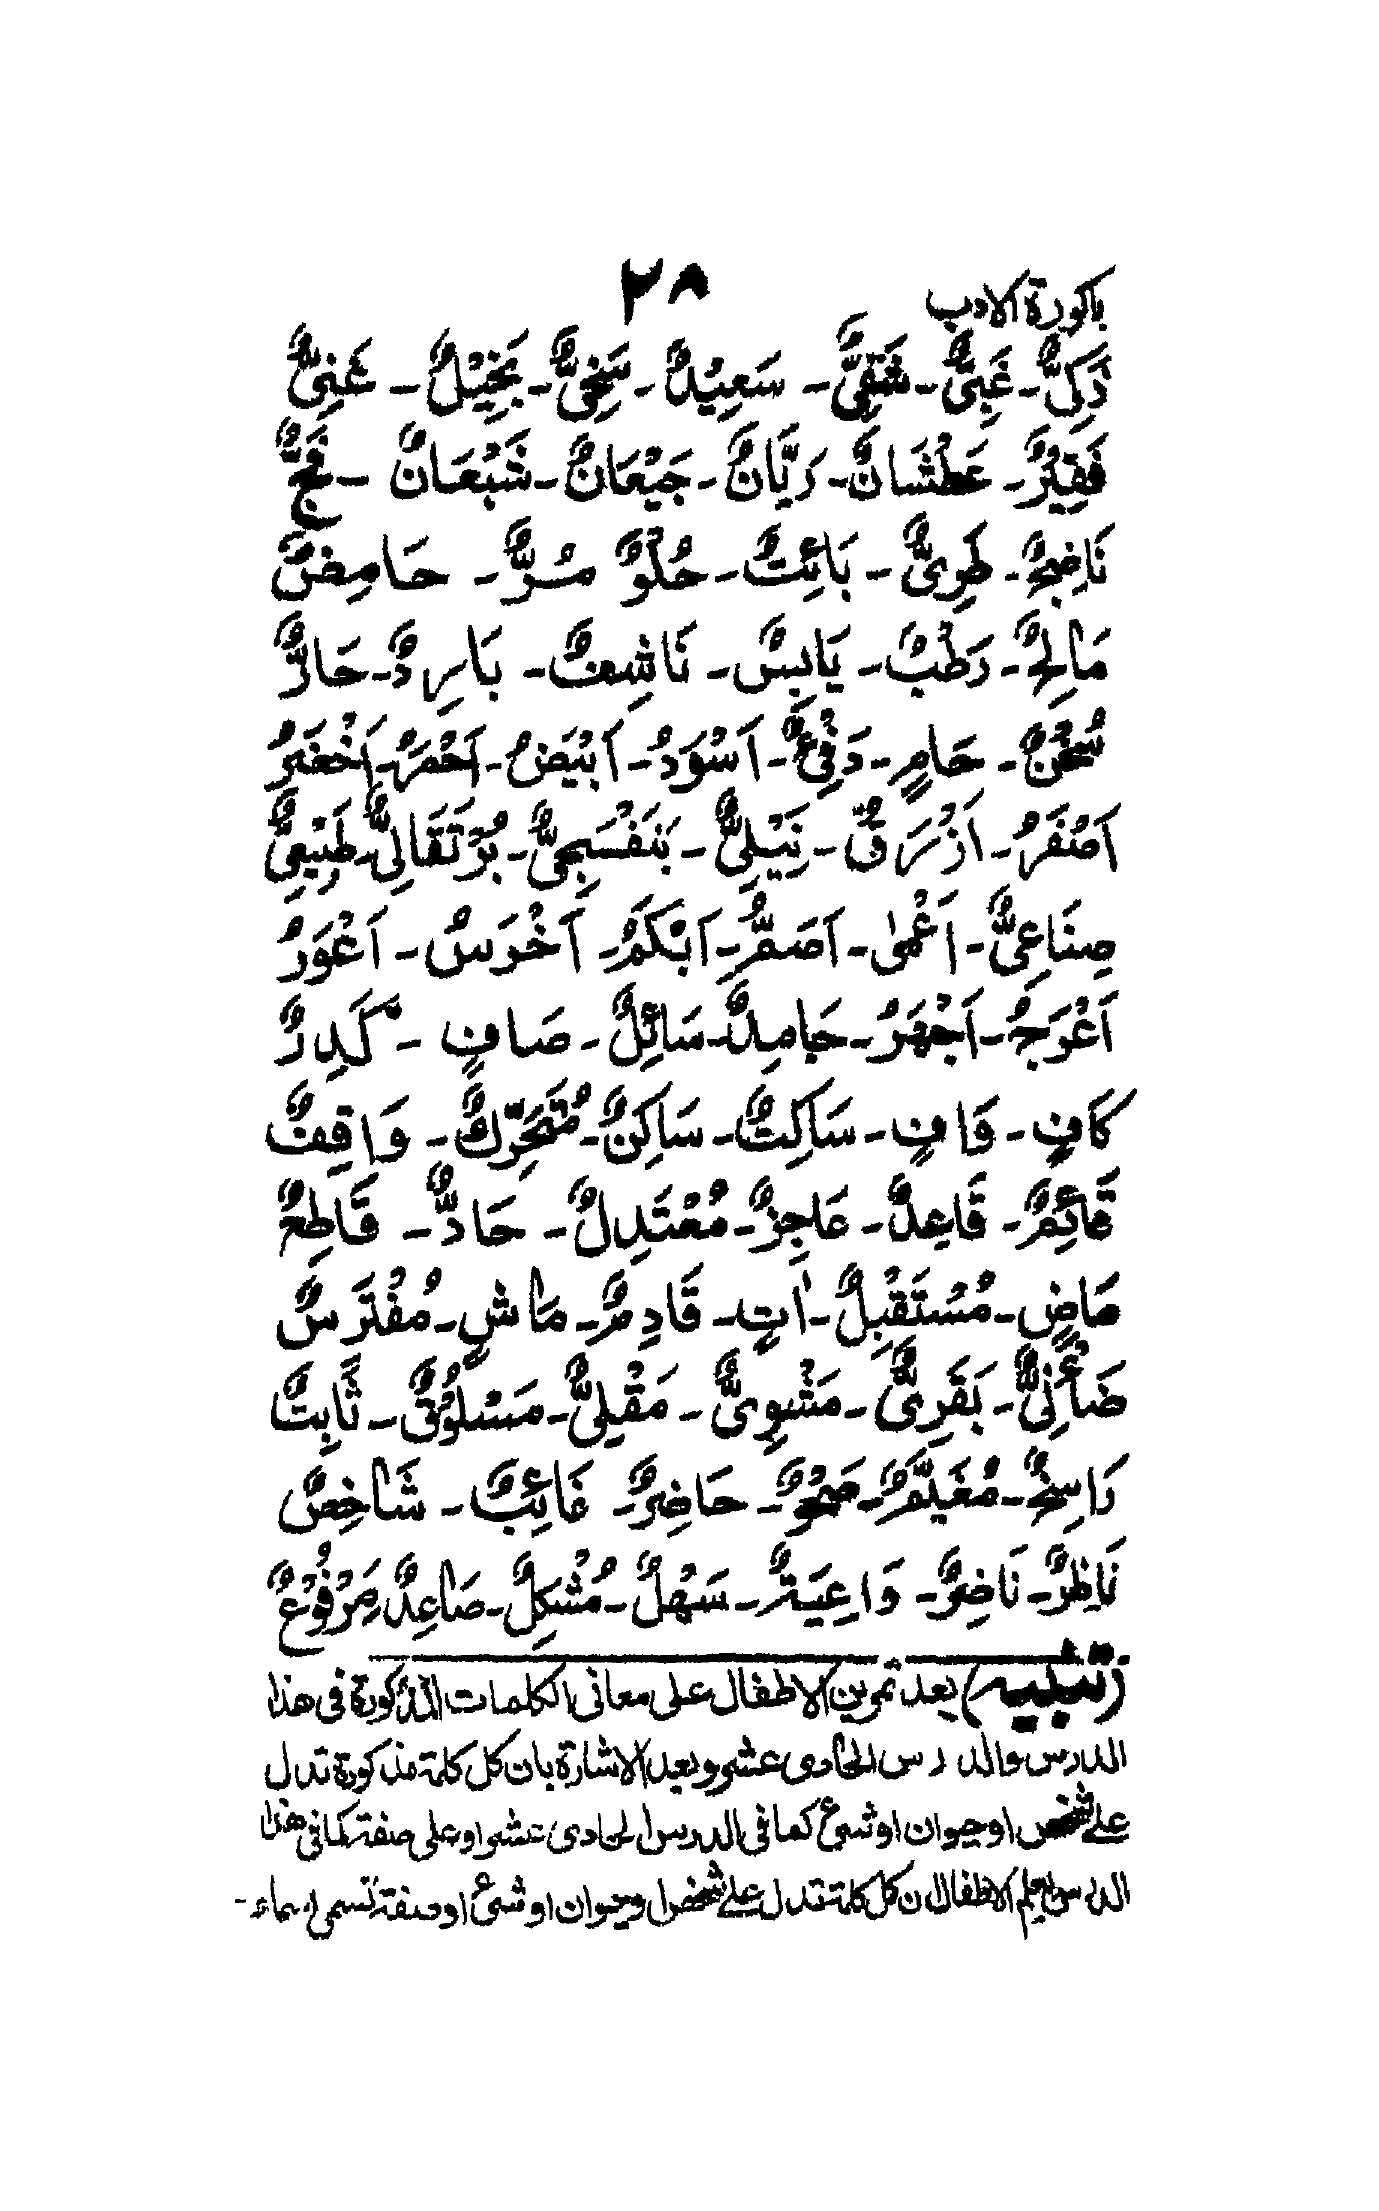 باكورة الادب ٢٨
ذَكِيٌّ - غَبِيٌّ - شَقِيٌّ - سَعِيْدٌ - سَخِيٌّ - بَخِيْلٌ - غَنِيٌّ
فَقِيْرٌ - عَطْشَانٌ - رَيَّانٌ - جَيْعَانٌ - شَبْعَانٌ - فَجٌّ
نَاضِجٌ - طَرِيٌّ - بَائِتٌ - حُلْوٌ مُرٌّ - حَامِضٌ
مَالِحٌ - رَطْبٌ - يَابِسٌ - نَاشِفٌ - بَارِدٌ - حَارٌّ
سُخْنٌ - حَامٍ - دَفِئٌ - اَسْوَدُ - اَبْيَضُ - اَحْمَرُ - اَخْضَرُ
اَصْفَرُ - اَزْرَقٌ - نِيْلِيٌّ - بَنَفْسَجِيٌّ - بُرْتَقَالِيٌّ - طَبِيْعِيٌّ
صِنَاعِيٌّ - اَعْمٰى - اَصَمُّ - اَبْكَمُ - اَخْرَسُ - اَعْوَرُ
اَعْرَجُ - اَجْهَرُ - جَامِدٌ - سَائِلٌ - صَافٍ - كَدِرٌ
كَافٍ - وَافٍ - سَاكِتٌ - سَاكِنٌ - مُتَحَرِّكٌ - وَاقِفٌ
قَائِمٌ - قَاعِدٌ - عَاجِزٌ - مُعْتَدِلٌ - حَادٌّ - قَاطِعٌ
مَاضٍ - مُسْتَقْبِلٌ - اٰتٍ - قَادِمٌ - مَاشٍ - مُفْتَرَسٌ
ضَأْنِيٌّ - بَقَرِيٌّ - مَشْوِيٌّ - مَقْلِيٌّ - مَسْلُوْقٌ - ثَابِتٌ
رَاسِخٌ - مُغَيَّمٌ - صَحْوٌ - حَاضِرٌ - غَائِبٌ - شَاخِصٌ
نَاظِرٌ - نَاضِرٌ - وَاعِيَةٌ - سَهْلٌ - مُشْكِلٌ - صَاعِدٌ مَرْفُوْعٌ
(تنبيه) بعد تمرين الاطفال على معانى الكلمات المذكورة فى هذا
الدرس والدرس الحادى عشر وبعد الاشارة بان كل كلمة مذكورة تدل
على شخص او حيوان او شىء كما فى الدرس الحادى عشر او على صفة كما فى هذا
الدرس يعلم الاطفال ان كل كلمة تدل على شخص او حيوان او شىء او صفة تسمى اسماء -